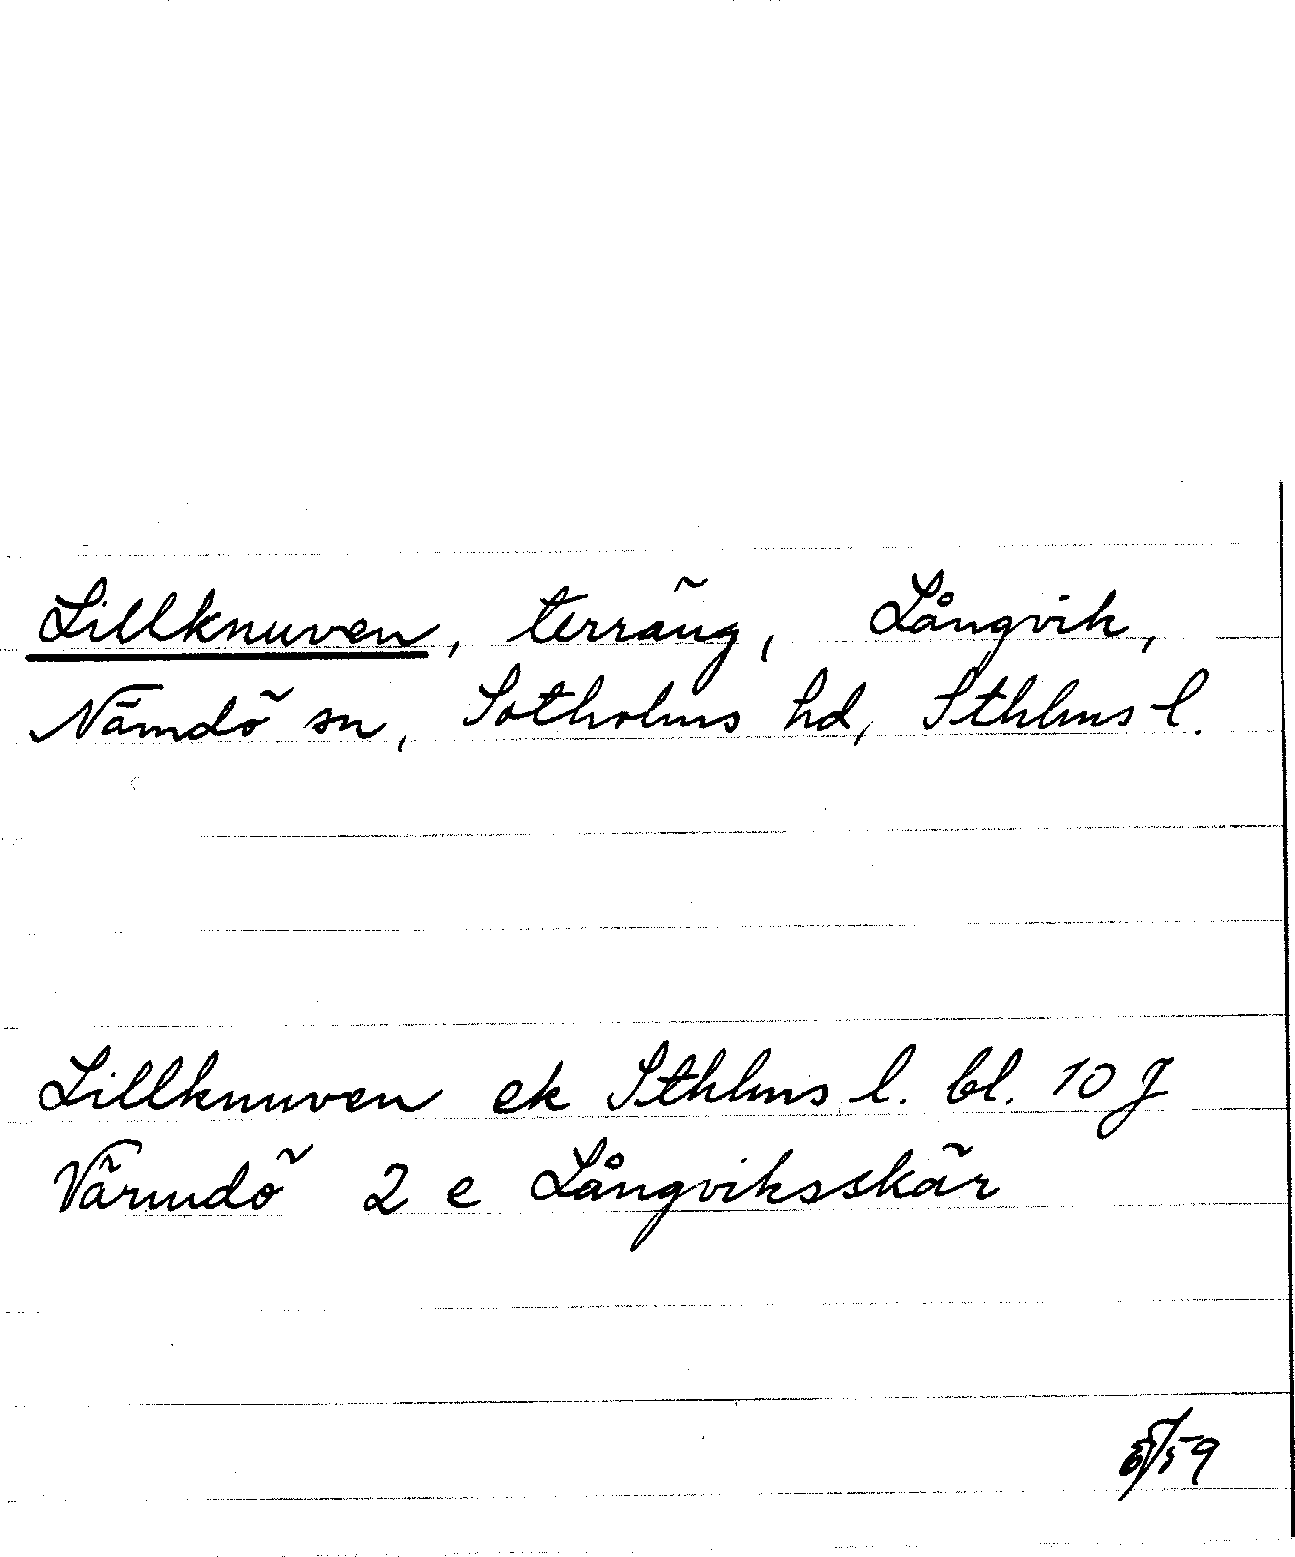 Lillknuven, terräng, Långvik,
Nämdö sn, Sotholms hd, Sthlms l.
Lillknuven ek Sthlms l. bl. 10 J
Värmdö 2 e Långviksskär
/59